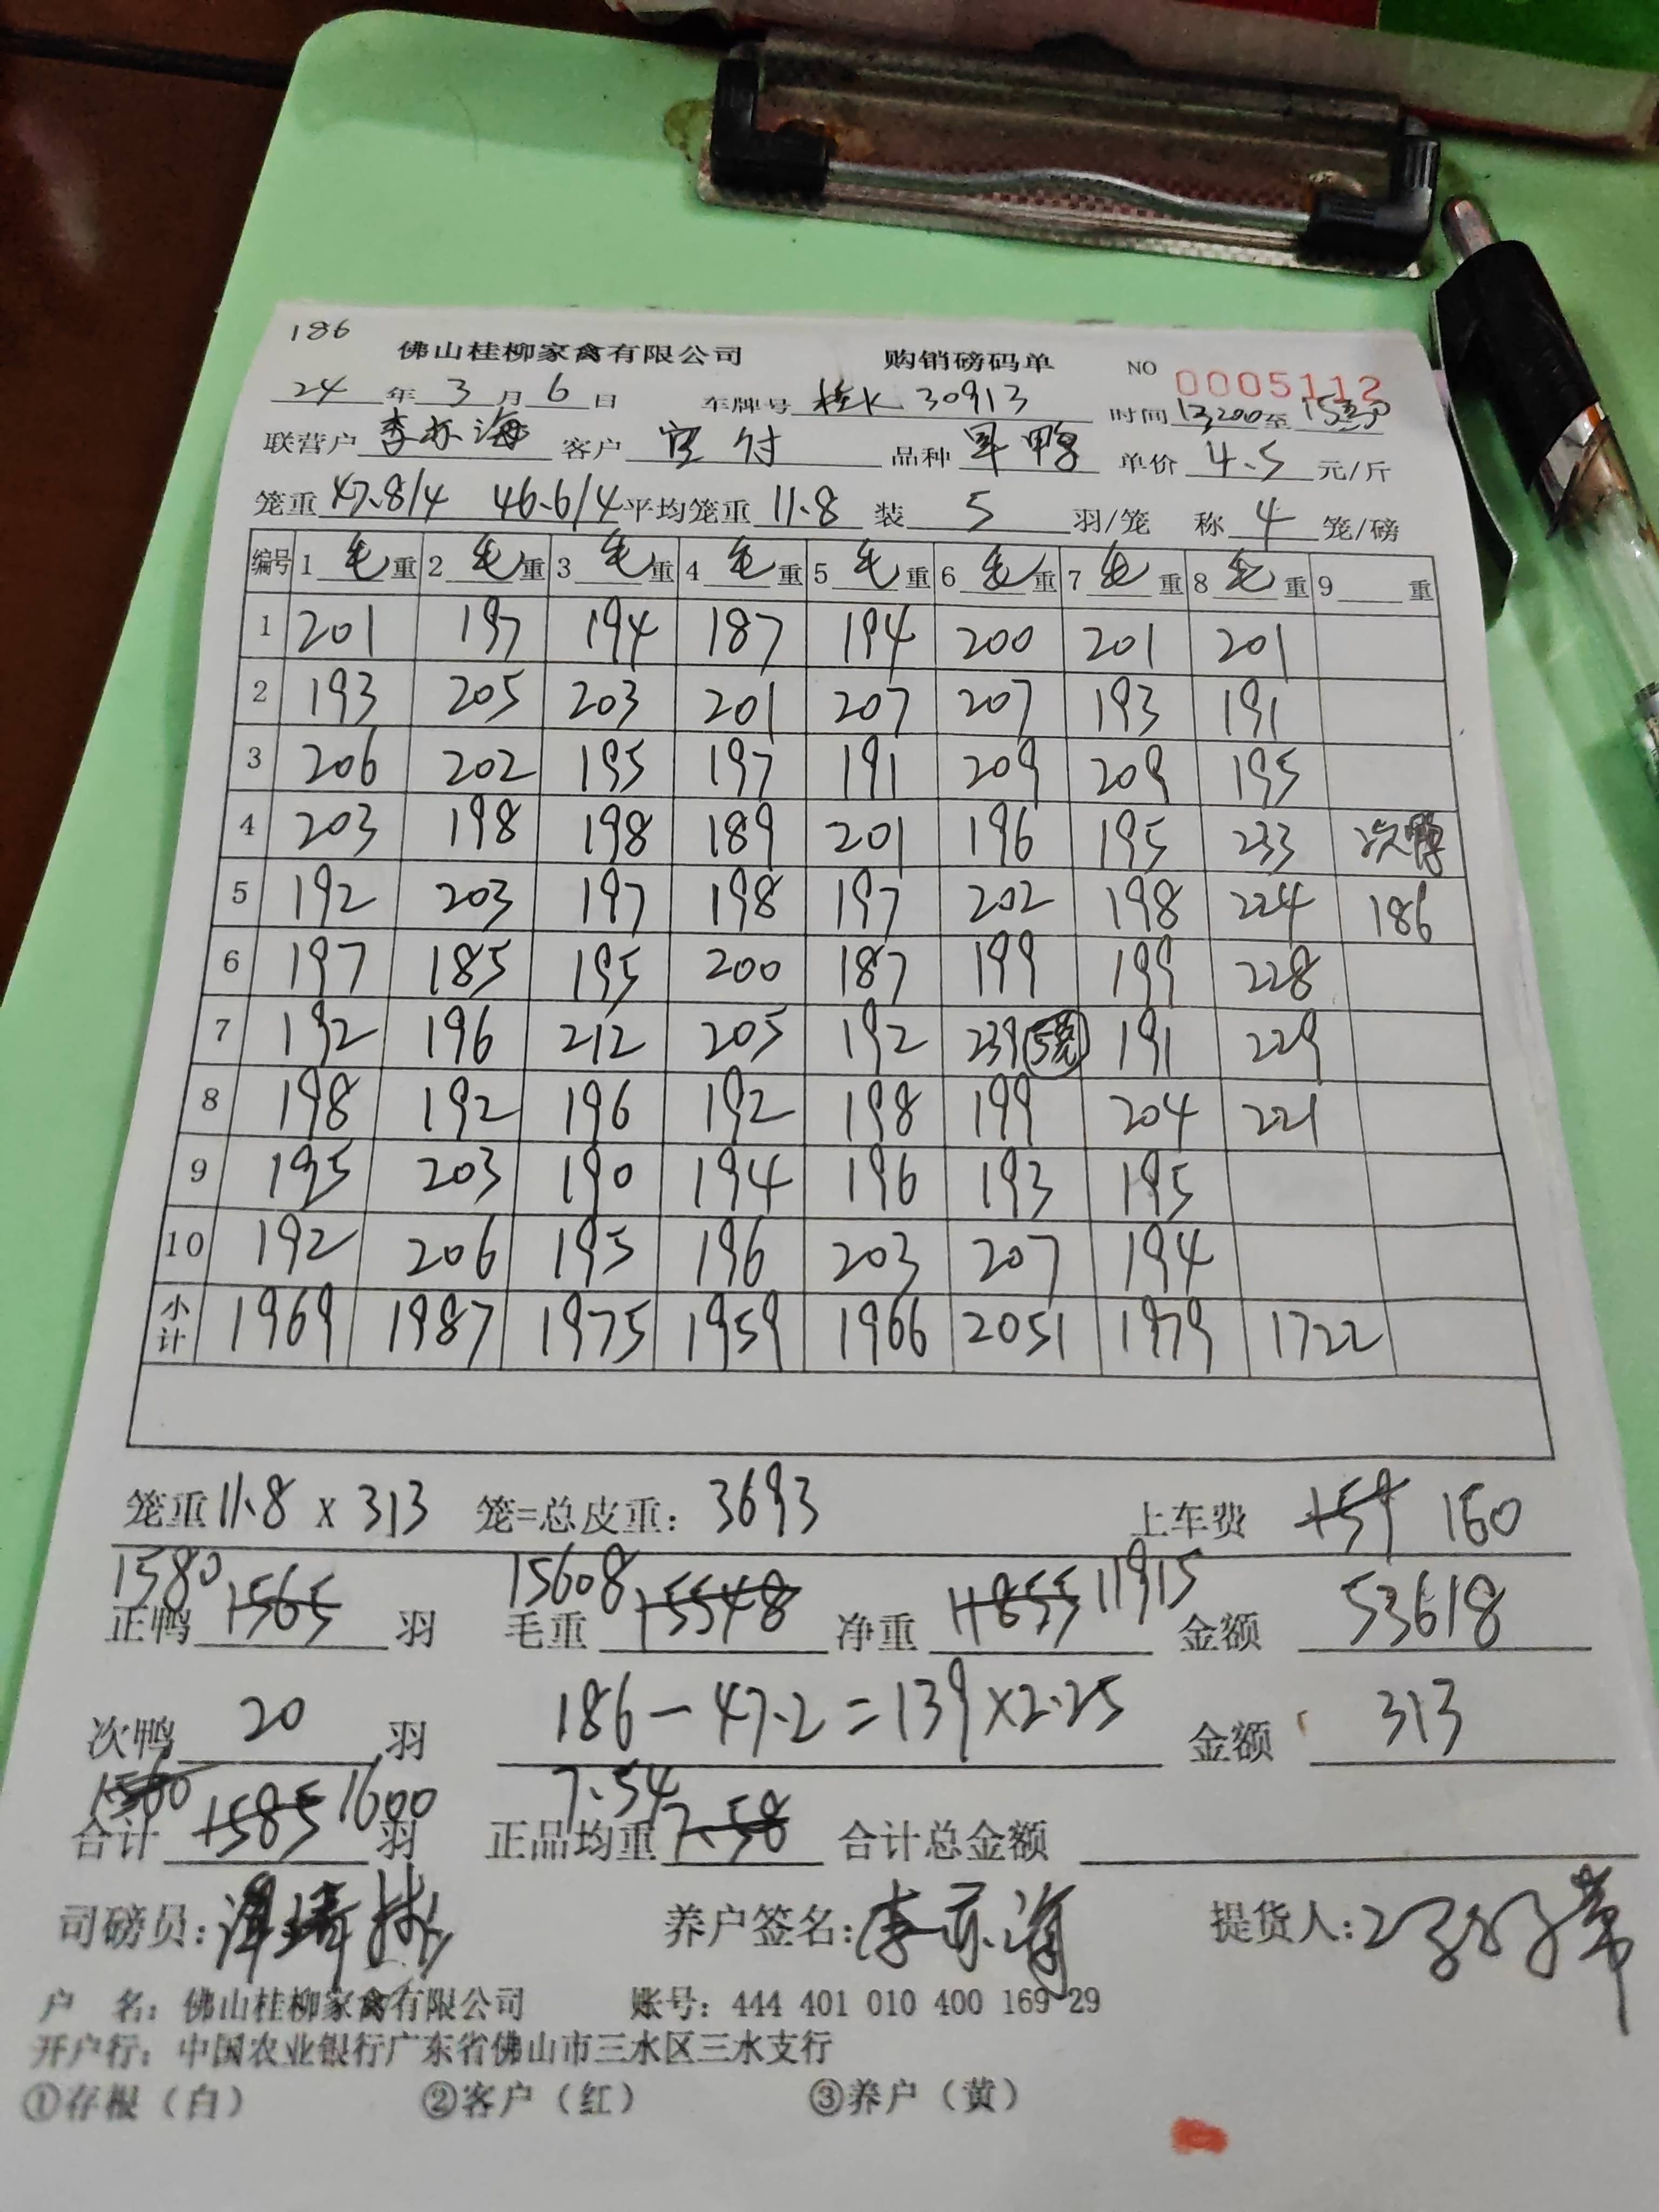 186
佛山桂柳家禽有限公司 购销磅码单 NO 0005112
24 年 3 月 6 日 车牌号 桂K 30913 时间 至
联营户 李亦海 客户 品种 单价 4.5 元/斤
笼重 47.8/4 46.6/4 平均笼重 11.8 装 5 羽/笼 称 4 笼/磅
编号 1 毛 重 2 毛 重 3 毛 重 4 毛 重 5 毛 重 6 毛 重 7 毛 重 8 毛 重 9 重
1 201 197 194 187 194 200 201 201
2 193 205 203 201 207 207 193 191
3 206 202 195 197 191 209 209 195
4 203 198 198 189 201 196 195 233 次鸭
5 192 203 197 198 197 202 198 224 186
6 197 185 195 200 187 199 199 228
7 192 196 212 205 192 239 191 229
8 198 192 196 192 198 199 204 221
9 195 203 190 194 196 193 195
10 192 206 195 196 203 207 194
小计 1969 1987 1975 1959 1966 2051 1979 1722
笼重 11.8 x 313 笼=总皮重: 3693 上车费 159 160
正鸭 1580 1565 羽 毛重 15608 15548 净重 11855 11915 金额 53618
次鸭 20 羽 186-47.2=139×2.25 金额 313
合计 1560 1585 1600 羽 正品均重 7.54 7.58 合计总金额
司磅员: 养户签名: 李亦海 提货人:
户 名: 佛山桂柳家禽有限公司 账号: 444 401 010 400 169 29
开户行: 中国农业银行广东省佛山市三水区三水支行
①存根(白) ②客户(红) ③养户(黄)